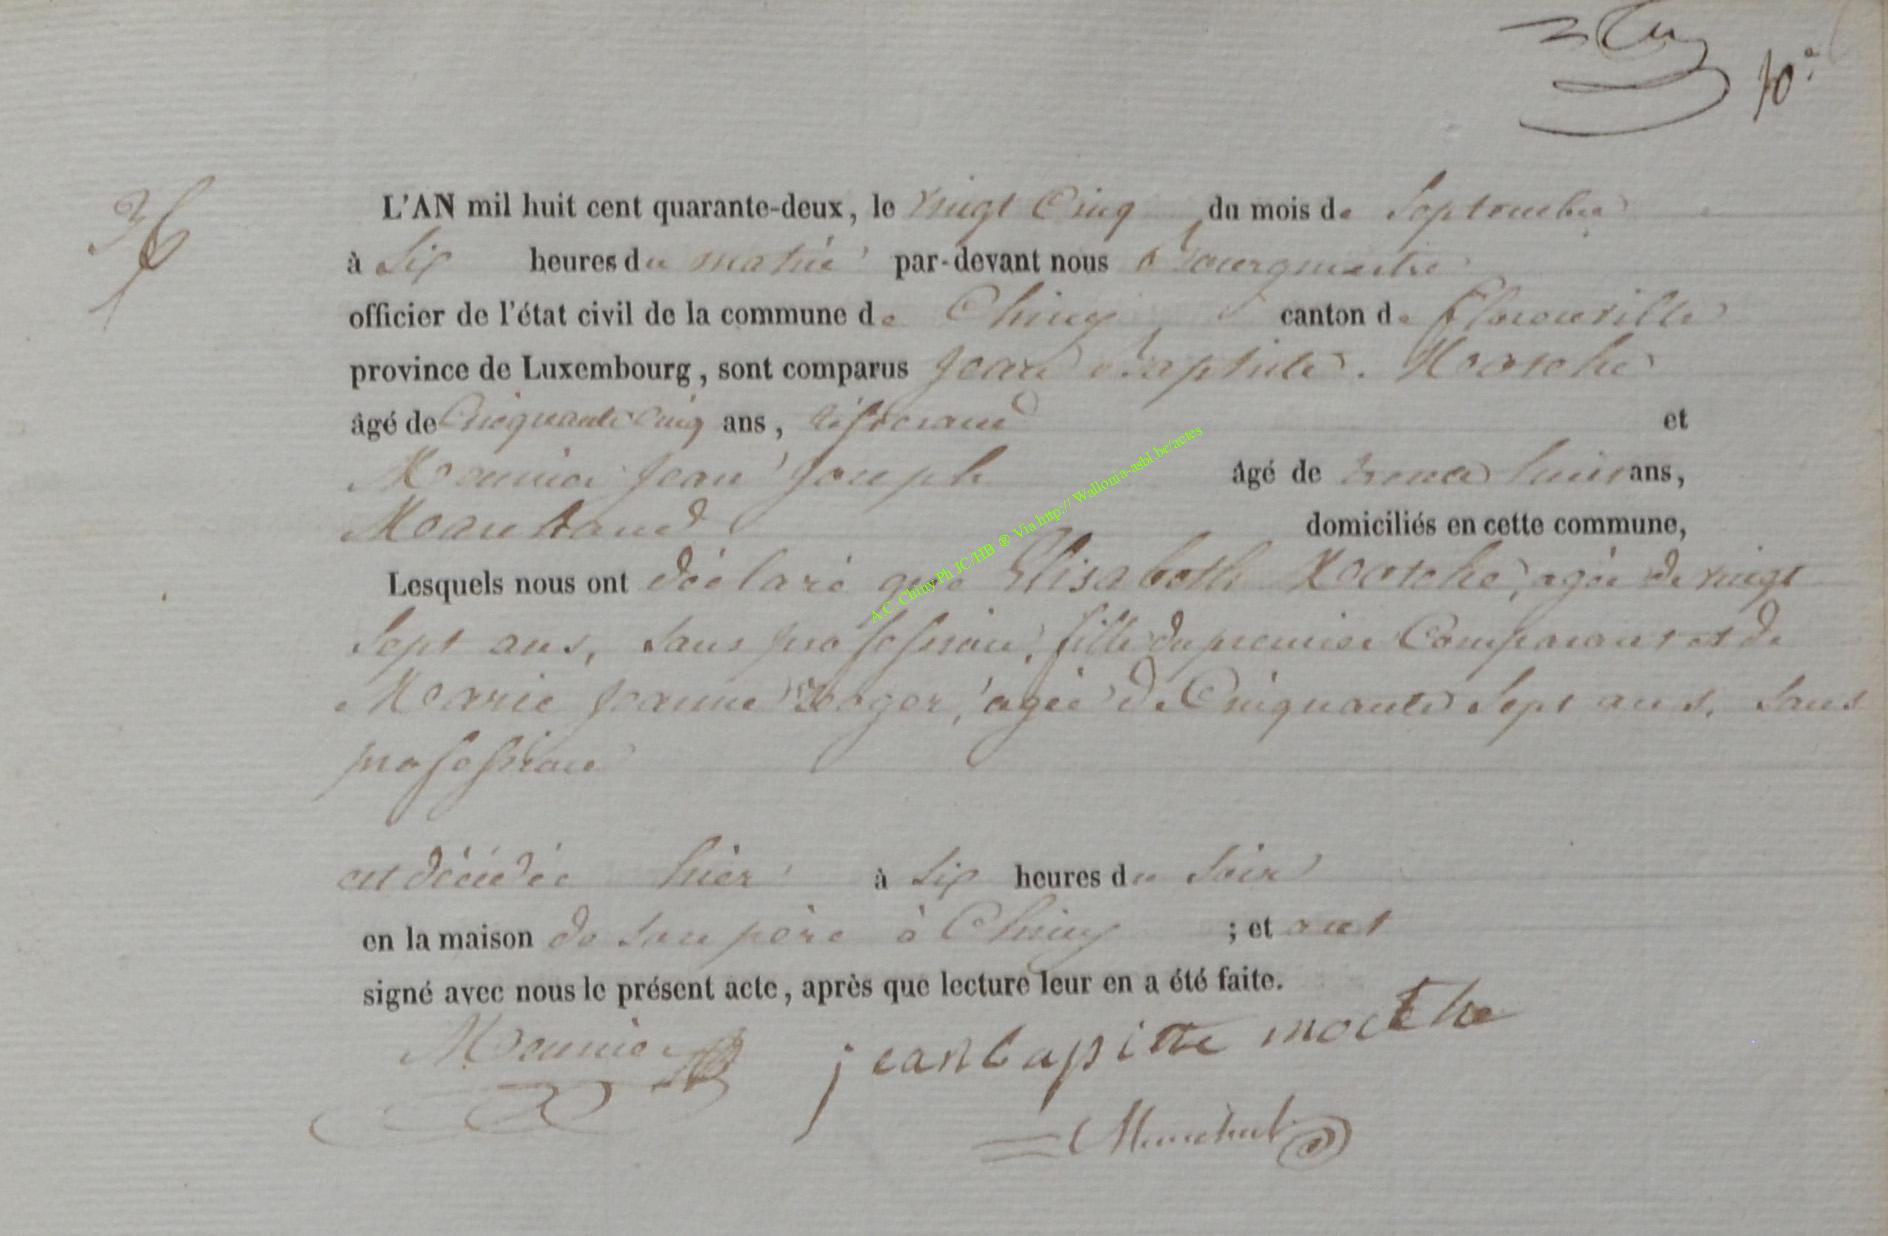 10.e
36
L'AN mil huit cent quarante-deux, le vingt Cinq du mois de Septembre
à Six heures du matin par-devant nous Bourgmestre
officier de l'état civil de la commune de Chiny, canton de florenville
province de Luxembourg, sont comparus jean Baptiste Hosche
âgé de Cinquante Cinq ans, tisserand et
Meunier jean joseph âgé de trente huit ans,
domiciliés en cette commune,
Lesquels nous ont déclaré que Elisabeth agée de vingt
Sept ans, Sans profession, fille du premier Comparant et de
Marie jeanne Roger, agée de Cinquante Sept ans, Sans
profession
est décédée hier à Six heures du Soir
en la maison de Son père à Chiny ; et ont
signé avec nous le présent acte, après que lecture leur en a été faite.
Meunier jean bapitte
A.C Chiny Ph JC/HB ® Via http:// Wallonia-asbl.be/actes